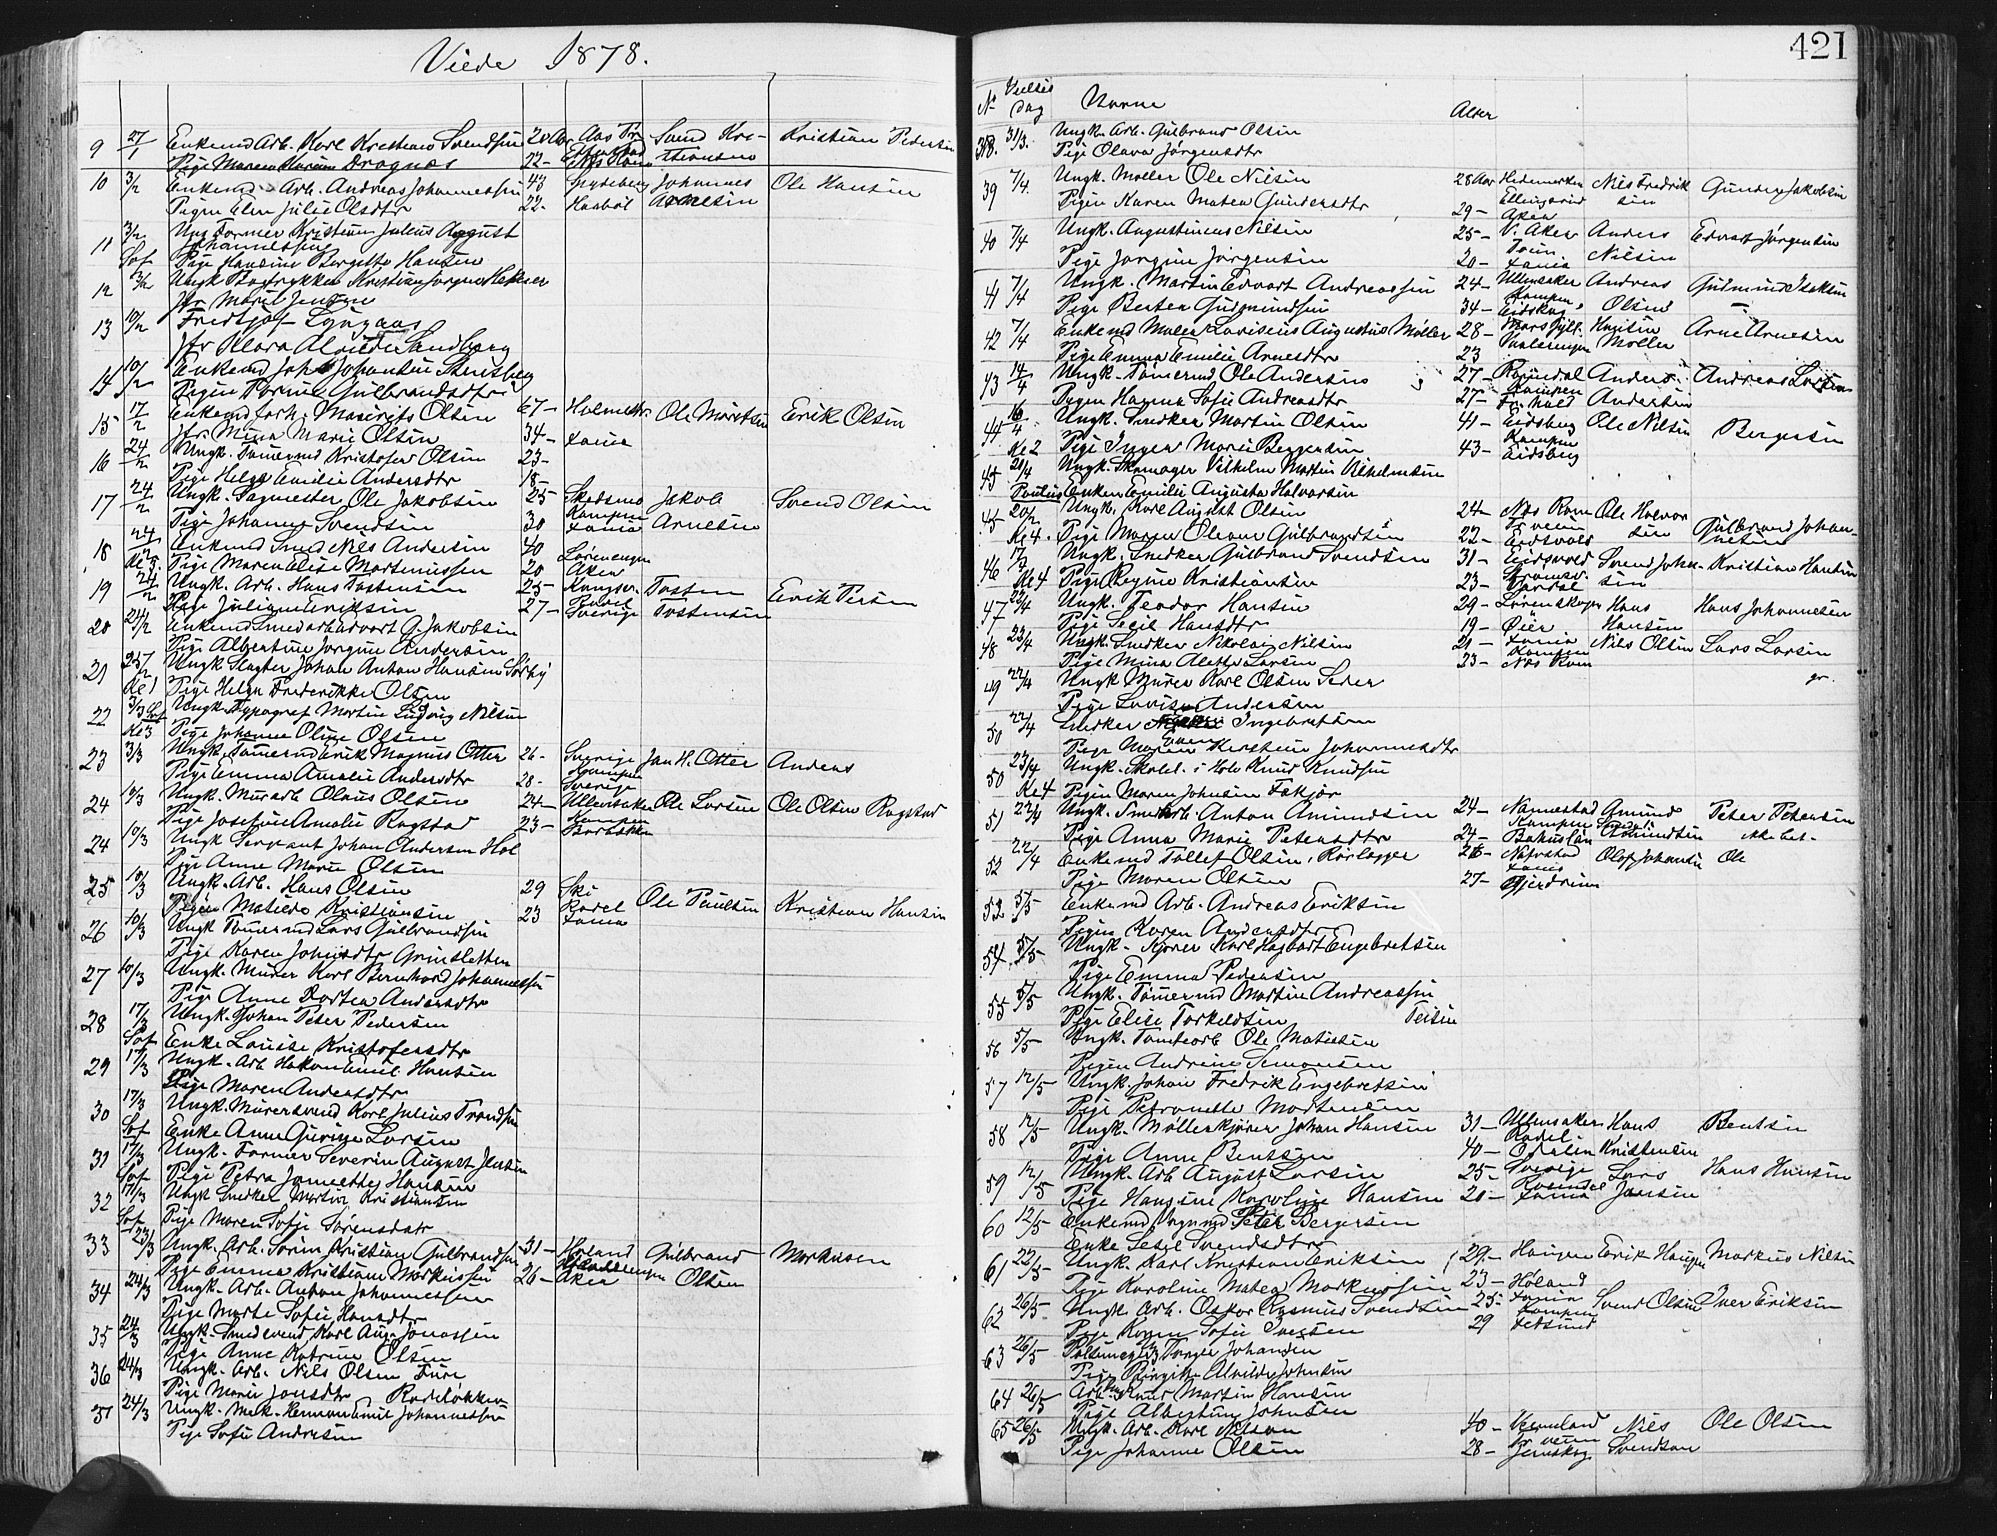 Viede 1878.
9 27/1 Enkemd Arb. Karl Kristians Svendsen 28 Aar Aas Pr Svend Kri- Kristian Pedersen
Pige Maren Karine Dragnæs 22- stiansen
10 3/2 Enkemd. Arb. Andreas Johannessen 43 Spydeberg Johannes Ole Hansen
Pigen Elen Julie Olsdtr 22- Arnesen
11 3/2 Ung Former Kristian Julius August Johannessen
Sof Pige Hansine Bergette Hansen
12 3/2 Ungk Bogtrykker Kristian Jørgen
Jfr Marie Jensen
13 10/2 Fredtjof Lyngaas
Jfr Klara Alvilde Sandberg
14 10/2 Enkemd Joh. Johansen
Pigen Torine Gulbrandsdtr
15 17/2 Enkemd forh. Maurits Olsen 67- Holmestr. Ole Moritsen Erik Olsen
Jfr. Mina Marie Olsen 34- Xania
16 24/2 Ungk. Tømermd Kristofer Olsen 23-
Pige Helga Emilie Andersdtr 18-
17 24/2 Ungk. Sagmester Ole Jakobsen 25 Skedsmo Jakob Svend Olsen
Pige Johanne Svendsen 30 Kampen Xania Arnesen
18 24/2 Enkemd Smed Nils Andersen 40 Lørenengen
Kl 3. Pige Maren Elise Martinussen 20 Aker
19 24/2 Ungk. Arb. Hans Tostensen 25- Kongsv. Tosten Erik Persen
Pige Juliane Eriksen 27- Rodel Sverige Tostensen
20 24/2 Enkemd Smedarb Edvart G. Jakobsen
Pige Albertine Jørgine Andersen
21 25/2 Ungk Slagter Johan Anton Hansen Sørby
Kl 1 Pige Helga Frederikke Olsen
22 3/3 Sof Ungk Typograf Martin Ludvig Nilsen
Kl 3 Pige Johanne Oline Olsen
23 3/3 Ungk. Tømermd Erik Magnus Otter 26- Sverige Jan H. Otter Anders
Pige Emma Amalie Andersdtr 28- Kampen Sverige
24 10/3 Ungk. Murarb Olaus Olsen 24- Ullensaker Ole Larsen Ole Olsen Rogstad
Pige Josefine Amalie Rogstad 23- Kampen
24 10/3 Ungk Sergeant Johan Andersen Hol
Pige Anne Marie Olsen
25 10/3 Ungk. Arb. Hans Olsen 29 Ski Ole Paulsen Kristian Hansen
Pigen Matilde Kristiansen 23 Rodel Xania
26 10/3 Ungk Tømermd Lars Gulbrandsen
Pige Karen Johnsdtr Grinsletten
27 10/3 Ungk. Murer Karl Bernhard Johannessen
Pige Anne Dortea Andersdtr
28 17/3 Ungk. Johan Peter Pedersen
Sof Enke Louise Kristofersdtr
29 17/3 Ungk. Arb Hakon Emil Hansen
Pige Maren Andersdtr
30 17/3 Ungk. Murersvend Karl Julius Trondsen
Sof Enke Anne Gurine Larsen
31 17/3 Ungk. Former Severin August Jensen
Sof Pige Petra Jannette Hansen
32 17/3 Ungk Snedker Martin Kristiansen
Sof Pige Maren Sofie Sørensdatr
33 23/3 Ungk. Arb. Søren Kristian Gulbrandsen 31- Høland Gulbrand Markusen
Pige Emma Kristiane Markussen 26- Aker Olsen
34 24/3 Ungk. Arb. Anton Johannessen
Pige Marte Sofie Hansdtr
35 24/3 Ungk. Smedsvend Karl Aug. Jonassen
Pige Anne Katrine Olsen
36 24/3 Ungk. Arb. Nils Olsen Fure
Pige Marie Jonsdtr Rodeløkken
37 24/3 Ungk. Mek. Herman Emil Johannessen
Pige Sofie Andresen
421
No Vielses dag Navne Alder
38. 31/3. Ungk. Arb. Gulbrand Olsen
Pige Olava Jørgensdtr
39 7/4 Ungk. Møller Ole Nilsen 28 Aar Hedemarken Nils Fredrik Gunder Jakobsen
Pigen Karen Matea Gundersdtr 29- Ellingsrud Aker sen
40 7/4 Ungk. Augustinus Nilsen 25- V. Aker Anders Edvart Jørgensen
Pige Jørgine Jørgensen 20- Xania Nilsen
41 7/4 Ungk. Martin Edvart Andreassen 24- Ullensaker Andreas Gulmund Isaksen
Pige Berten Gulmundsen 34- Kampen Eidskog Olsen
42 7/4 Enkemd Maler Lavisius Augustus Møller 28- Hansen Arne Arnesen
Pige Emma Emilie Arnesdtr 23 Vaalerengen Møller
43 14/4 Ungk. Tømermd Ole Andersen 27- Romsdal Anders Andreas Larsen
Pigen Hanna Sofie Andreasdtr 27- Kampen Fr.hald Andersen
44 16/4 Ungk. Snedker Martin Olsen 41- Eidsberg Ole Nilsen Bergersen
Kl 2 Pige Inger Marie Bergersen 43- Kampen Eidsberg
45 20/4 Ungk. Skomager Vilhelm Martin Vilhelmsen
Paulus Enken Emilie Augusta Halvorsen
45 20/2 Ungk. Karl August Olsen 24- Næs Rom Ole Halvor Gulbrand Johan-
Kl 4. Pige Maren Oleane Gulbrandsen 22- Eidsvold sen nesen
46 17/2 Ungk. Snedker Gulbrand Svendsen 31- Eidsvold Svend John- Kristian Hansen
Kl 4 Pige Regine Kristiansen 23- sen
47 22/4 Ungk. Teodor Hansen 29- Lørenskogen Hans Hans Johannesen
Pige Sesil Hansdtr 19- Øier Hansen
48 23/4 Ungk Snedker Nikolai Nilsen 21- Xania Nils Olsen Lars Larsen
Pige Mina Alette Larsen 23- Kampen Næs Rom gr.
49 22/4 Ungk Murer Karl Olsen Seter
Pige Lovise Andersen
50 22/4 Snedker Ingebretsen
Pige Maren Kirstine Johannesdtr
50 23/4 Ungk. Skolel. i Hole Knud Knudsen
Kl 4 Pigen Maren Johnsen Fekjær
51 22/4 Ungk. Smedarb. Anton Amundsen 24- Nannestad Amund Peter Petersen
Pige Anna Marie Petersdtr 24- Kampen Bahuslän Amundsen ikke bet-
52 22/4 Enkemd Tollef Olsen, Rørlægger 26- Olaf Johansen Ole
Pige Maren Olsen 27- Xania Gjerdrum
53 5/5 Enkemd Arb. Andreas Eriksen
Pigen Karen Andersdtr
54 5/5 Ungk. Kjører Karl Hagbart Engebretsen
Pige Emma Pedersen
55 5/5 Ungk. Tømermd Martin Andreassen
Pige Elise Torkeldsen Teisen
56 5/5 Ungk. Tomtearb Ole Matisen
Pigen Andrine Simonsen
57 12/5 Ungk. Johan Fredrik Engebretsen
Pige Petronelle Mortensen
58 12/5 Ungk. Møllerkjører Johan Hansen 31- Ullensaker Hans Bentsen
Pige Anne Bentsen 40- Rodel. Odalen Kristensen
59 12/5 Ungk. Arb August Larsen 25- Sverige Lars Hans Hansen
Pige Hansine Karoline Hansen 20- Xania Jansen
60 12/5 Enkemd Vognmd Peter Bergersen
Enke Sesil Svendsdtr
61 22/5 Ungk. Karl Kristian Eriksen 29- Haugen Erik Haugen Markus Nilsen
Pige Karoline Matea Markussen 23- Høland
62 26/5 Ungk Arb. Oskar Rasmus Svendsen 25- Xania Svend Olsen Iver Eriksen
Pige Karen Sofie Iversen 29 Kampen Fetsund
63 26/5 Pølsemager Torger Johansen
Pige Birgitte Alvilde Johnsen
64 26/5 Arb. Knud Martin Hansen
Pige Albertine Johnsen
65 26/5 Ungk. Arb. Karl Nilsen 40- Vermland Nils Ole Olsen
Pige Johanne Olsen 28- Jemskog Svendsen